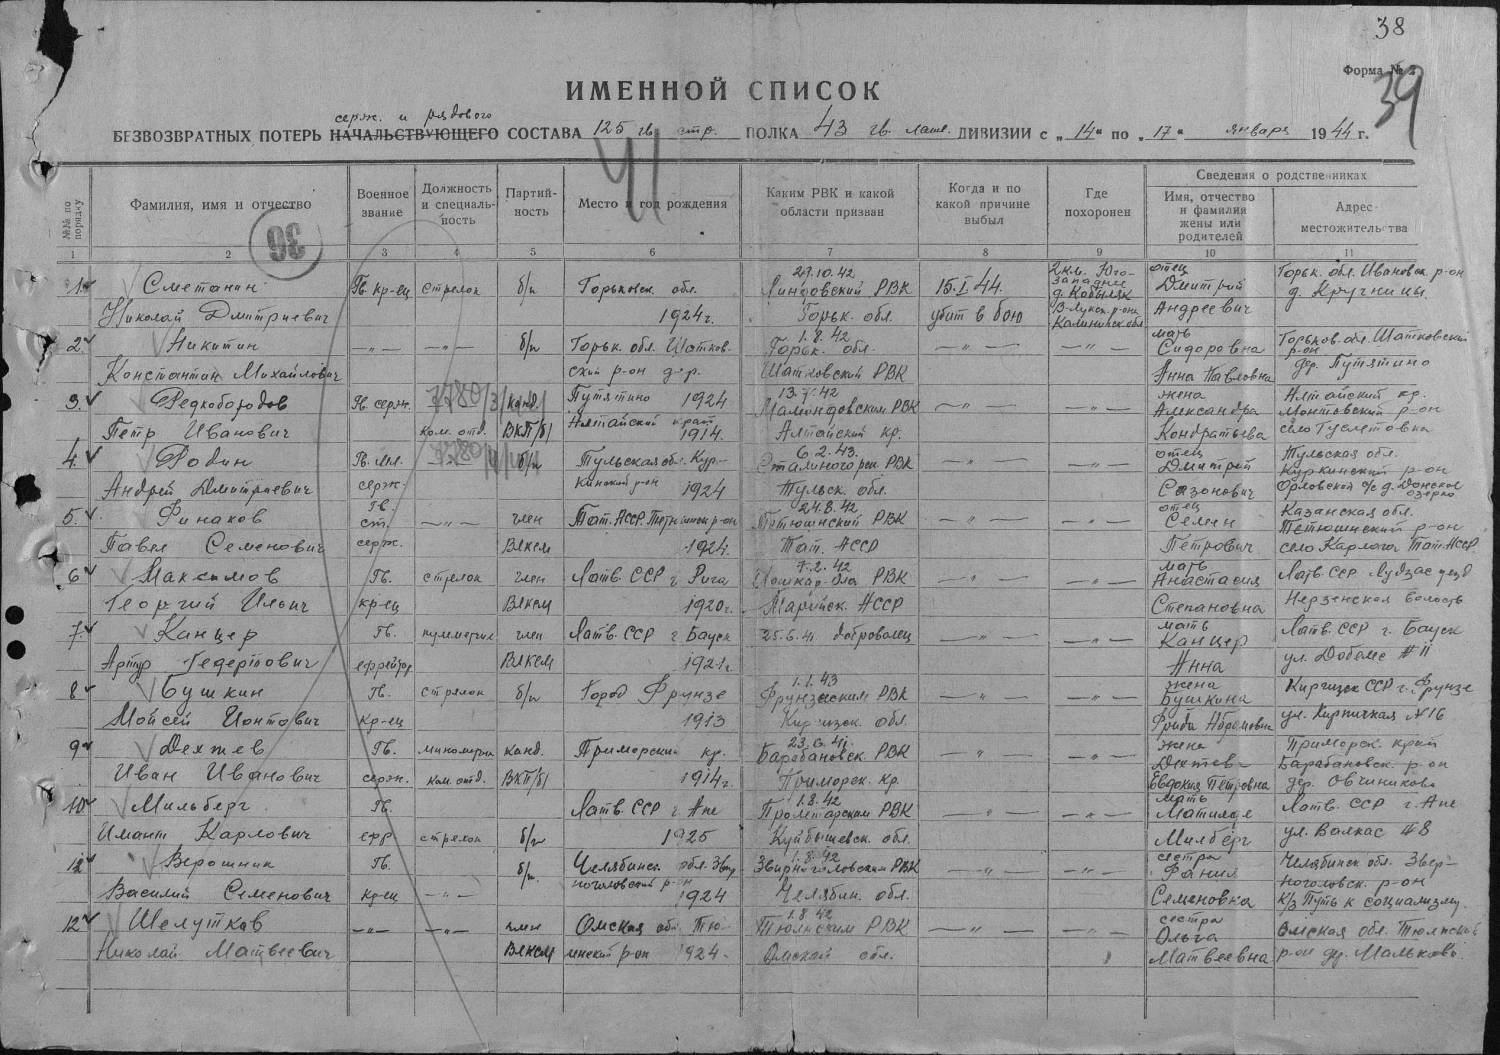 38
Форма № 2
39
ИМЕННОЙ СПИСОК
серж. и рядового
БЕЗВОЗВРАТНЫХ ПОТЕРЬ НАЧАЛЬСТВУЮЩЕГО СОСТАВА 125 гв. стр. ПОЛКА 43 гв. латв. ДИВИЗИИ с „14" по „17" января 1944 г.
41
36
№№ по порядку
Фамилия, имя и отчество
Военное звание
Должность и специаль-ность
Партий-ность
Место и год рождения
Каким РВК и какой области призван
Когда и по какой причине выбыл
Где похоронен
Сведения о родственниках
Имя, отчество и фамилия жены или родителей
Адрес местожительства
1 2 3 4 5 6 7 8 9 10 11
1. Сметанин Николай Дмитриевич Гв. кр-ец стрелок б/п Горьковск. обл. 1924 г. 27.10.42 РВК Горьк. обл. 15.I 44 убит в бою 2 км. Юго-западнее д. Кобыляк В-Лукск. р-она Калининск. обл отец Дмитрий Андреевич Горьк. обл. Ивановск р-он д. Кручницы.
2. Никитин Константин Михайлович —"— —"— б/п Горьк. обл. Шатков-ский р-он дер. Путятино 1924 1.8.42 Горьк. обл. Шатковский РВК —"— —"— мать Сидоровна Анна Павловна Горьков. обл. Шатковский р-он дер. Путятино
3. Редкобородов Петр Иванович Гв. серж. 7780/3 ком. отд. канд. ВКП/б/ Алтайский край 1914. 42 РВК Алтайский кр. —"— —"— жена Александра Кондратьева Алтайский кр. р-он село
4. Родин Андрей Дмитриевич Гв. мл. серж. 7780/4 б/п Тульская обл. Кур-кинский р-он 1924 6.2.43. Сталиногорск. РВК Тульск. обл. —"— —"— отец Дмитрий Сазонович Тульская обл. Куркинский р-он Орловской с/с д. Донское озерко
5. Финаков Павел Семенович Гв. ст. серж. —"— член Влксм Тат. АССР. р-он 1924. 24.8.42 Тетюшинский РВК Тат. АССР —"— —"— отец Семен Петрович Казанская обл. Тетюшинский р-он село Тат. АССР
6. Максимов Георгий Ильич Гв. кр-ец стрелок член Влксм Латв. ССР г. Рига 1920 г. 7.2.42 Йошкар-Ола РВК Марийск. АССР —"— —"— мать Анастасия Степановна Латв. ССР Лудзас уезд волость
7. Канцер Артур Гв. ефрейтор член Влксм Латв. ССР г. Бауск 1921 г. 25.6.41 доброволец —"— —"— мать Канцер Анна Латв. ССР г. Бауск ул. Добеле # 11
8. Бушкин Мойсей Гв. кр-ец стрелок б/п Город Фрунзе 1913 1.1.43 Фрунзенским РВК Киргизск. обл. —"— —"— жена Бушкина Абрамовна Киргизск ССР г. Фрунзе ул. Кирпичная №16
9. Дехтев Иван Иванович Гв. серж. ком. отд. канд. ВКП/б/ Приморский кр. 1914 г. 23.6.41. Барабановск. РВК Приморск. кр. —"— —"— жена Дехтев— Евдокия Петровна Приморск. край Барабановск. р-он дер. Овчиниково
10. Мильберг Имант Карлович Гв. ефр стрелок б/п Латв. ССР г. Апе 1925 1.8.42 Пролетарским РВК Куйбышевск. обл. —"— мать Матильде Милберг Латв. ССР г. Апе ул. Валкас # 8
11. Верошник Василий Семенович Гв. кр-ец —"— б/п. Челябинск. обл. Звер-ноголовский р-он 1924 1.8.42 РВК Челябин. обл. —"— —"— сестра Фания Семеновна Челябинск обл. Звер-ноголовск. р-он к/з Путь к социализму.
12. Шелутков Николай Матвеевич —"— —"— член Влксм Омская обл. р-он 1924 1.8.42 РВК Омской обл. —"— —"— сестра Ольга Матвеевна Омская обл. р-он др. Мальково